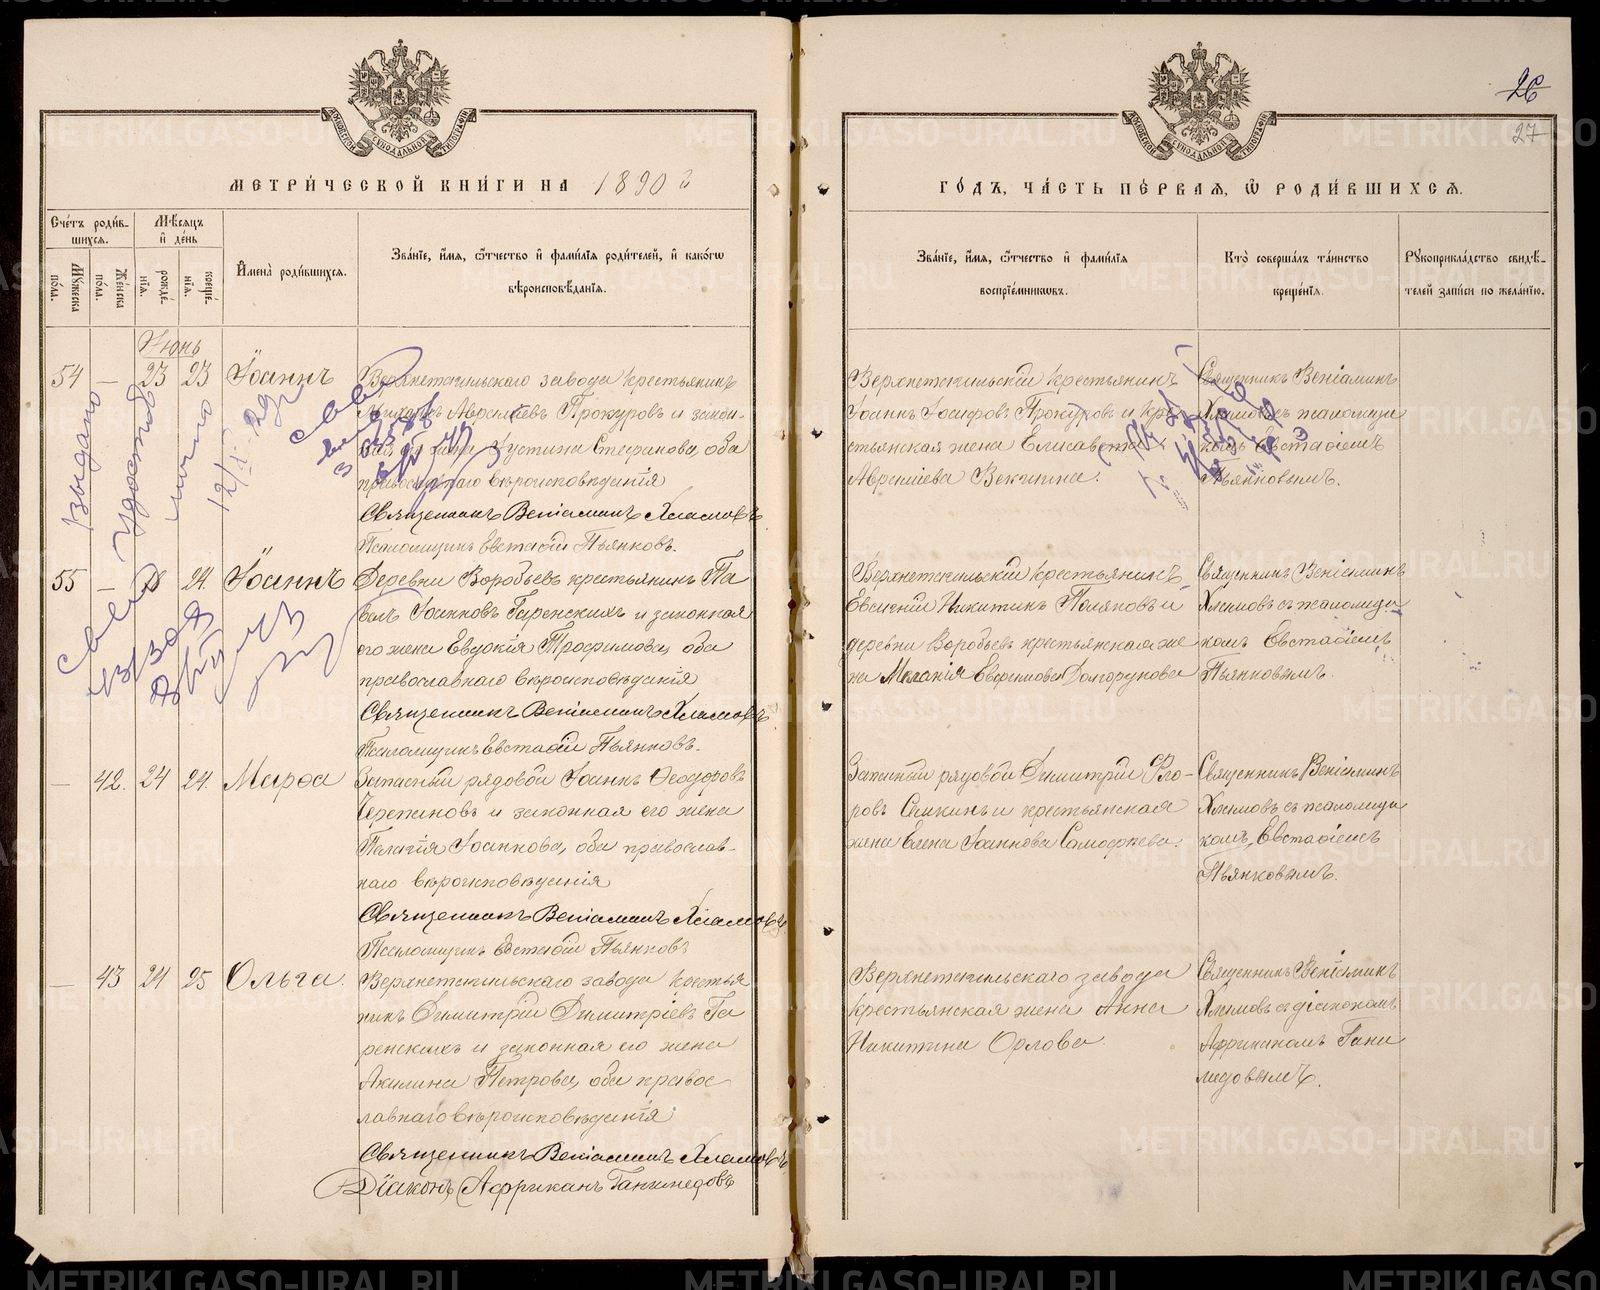 МЕТРИ́ЧЕСКОЙ КНИ́ГИ НА 1890 й
Сче́тъ роди́в-
шихсѧ.
Мѣ́сѧцъ
и҆ де́нь
Мꙋ́жеска
по́ла.
Же́нска
по́ла.
рожде́-
нїѧ.
креще́-
нїѧ.
И҆мена̀ роди́вшихсѧ.
Зва́нїе, и҆́мѧ, ѻ҆́тчество и҆ фами́лїѧ роди́телей, и҆ како́гѡ
вѣроисповѣ́данїѧ.
Іюнь
54 — 23 23 Іоаннъ
Верхнетагильскаго завода крестьянинъ
Прокуровъ и закон-
Іустина Стефанова, оба
православнаго вѣроисповѣданія
Священникъ Веніаминъ Хламовъ
Псаломщикъ Евстафій Пьянковъ.
55 — 24. Іоаннъ
Деревни Воробьевъ крестьянинъ Па
велъ Іоанновъ Гаренскихъ и законная
его жена Евдокія Трофимова, оба
православнаго вѣроисповѣданія
Священникъ Веніаминъ Хламовъ
Псаломщикъ Евстафій Пьянковъ.
— 42. 24 24. Марѳа
Запасный рядовой Іоаннъ Ѳеодоровъ
Черепановъ и законная его жена
Пелагія Іоаннова, оба православ-
наго вѣроисповѣданія
Священникъ Веніаминъ Хламовъ
Псаломщикъ Евстафій Пьянковъ
— 43 24 25 Ольга.
Верхнетагильскаго завода крестья
нинъ Димитрій Димитріевъ Га
ренскихъ и законная его жена
Акилина Петрова, оба правос
лавнаго вѣроисповѣданія
Священникъ Веніаминъ Хламовъ
Діаконъ Африканъ Ганимедовъ
выдано
12/II-29
26
27
ГО́ДЪ, ЧА́СТЬ ПЕ́РВАѦ, Ѡ҆ РОДИ́ВШИХСѦ.
Зва́нїе, и҆́мѧ, ѻ҆́тчество и҆ фами́лїѧ
воспрїе́мникѡвъ.
Кто̀ соверша́лъ та́инство
креще́нїѧ.
Рꙋкоприкла́дство свидѣ́-
телей за́писи по жела́нїю.
Верхнетагильскій крестьянинъ
Іоаннъ Іосифовъ Прокуровъ и кре-
стьянская жена Елисавета
Векшина.
Священникъ Веніаминъ
Хламовъ псаломщи
комъ Евстафіемъ
Пьянковымъ.
Верхнетагильскій крестьянинъ
Евгеній Никитинъ Поляковъ и
деревни Воробьевъ крестьянская же
на Меланія Ефремова Долгорукова
Священникъ Веніаминъ
Хламовъ съ псаломщи
комъ Евстафіемъ
Пьянковымъ.
Запасный рядовой Димитрій Фло-
ровъ и крестьянская
жена Елена Іоаннова
Священникъ Веніаминъ
Хламовъ съ псаломщи
комъ Евстафіемъ
Пьянковымъ.
Верхнетагильскаго завода
крестьянская жена Анна
Никитина Орлова.
Священникъ Веніаминъ
Хламовъ съ діакономъ
Африканомъ Гани
медовымъ.